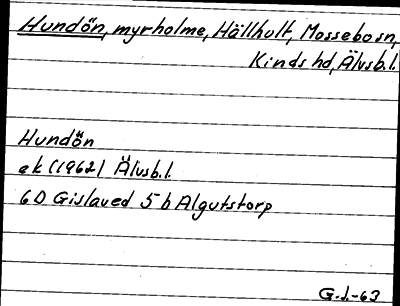 Hundön, myrholme, Hällhult, Mossebo sn,
Kinds hd, Älvsb. l.
Hundön
ek (1962) Älvsb. l.
6D Gislaved 5 b Algutstorp
G.L-63